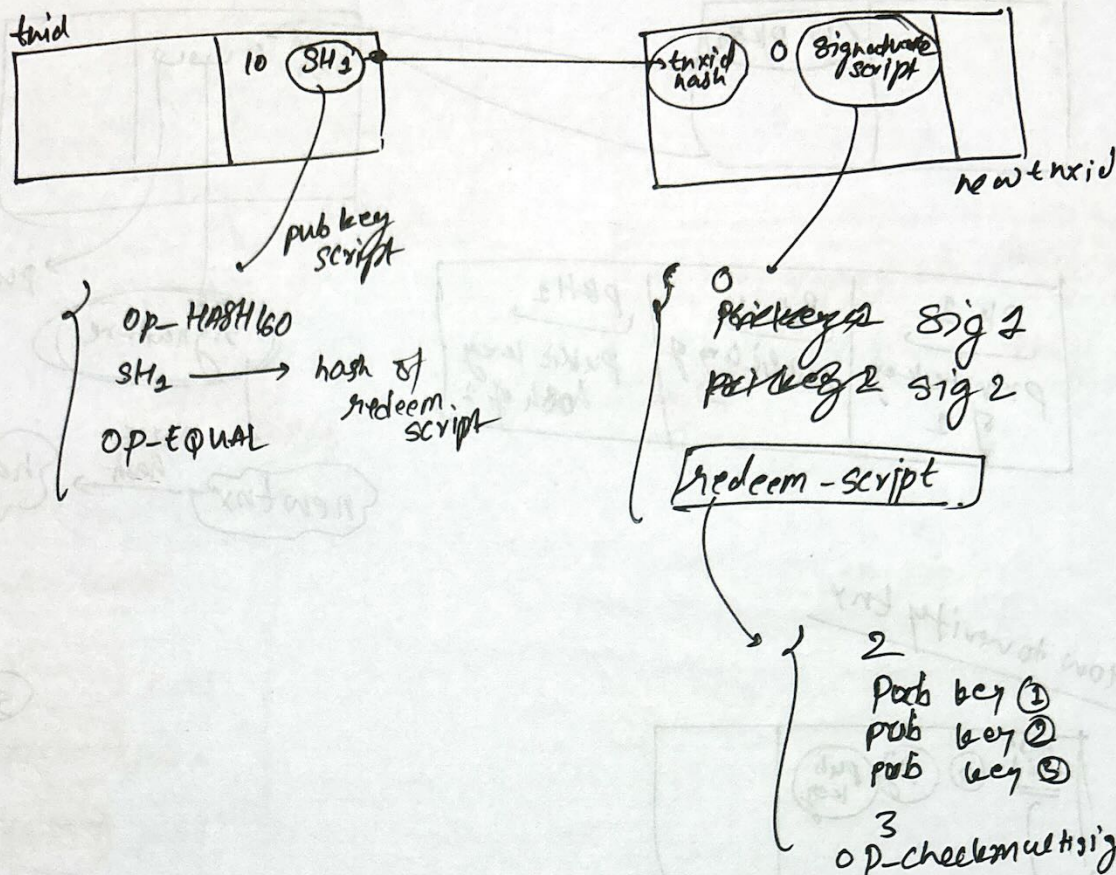 tnxid
10 SH1
tnxid hash 0 signature script
new tnxid
pub key
script
OP_HASH160
SH1 → hash of
redeem script
OP-EQUAL
0
sig 1
sig 2
redeem-script
2
Pub key ①
pub key ②
pub key ③
3
OP_checkmultisig